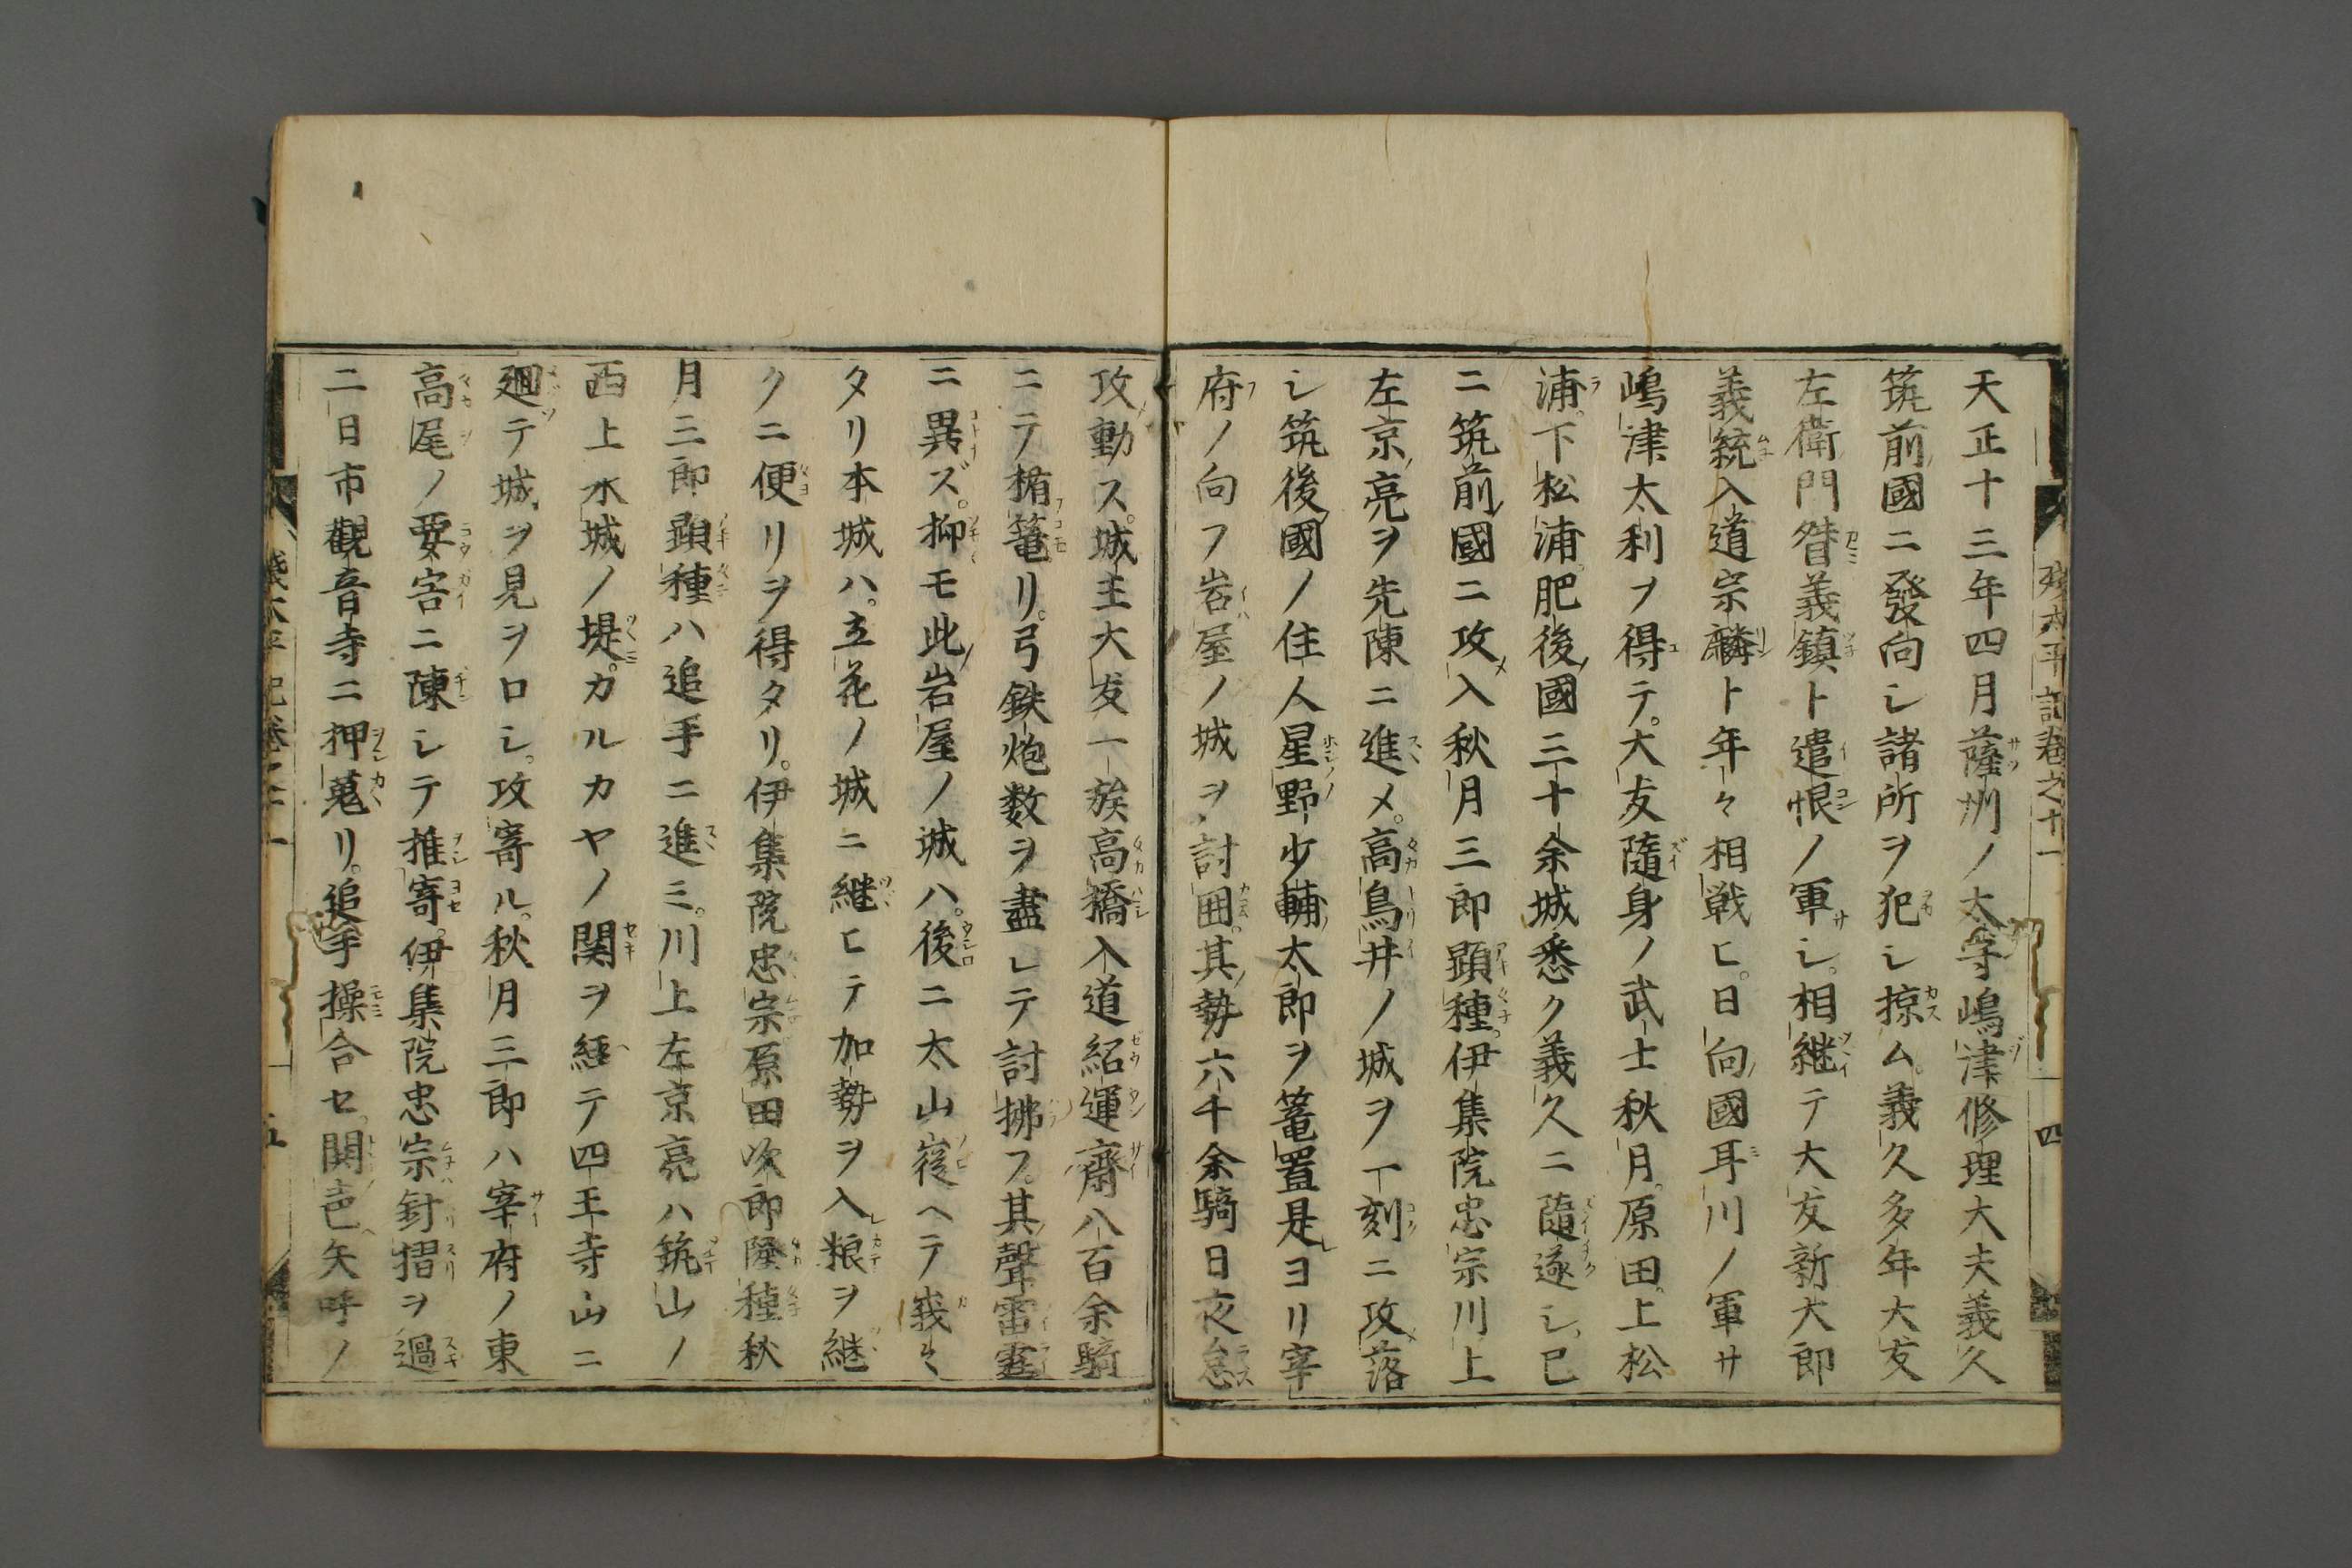 残太平記巻之十一 四
天正十三年四月薩州ノ太守嶋津修理大夫義久
筑前國ニ發向シ諸所ヲ犯シ掠ム。義久多年大友
左衛門督義鎮ト遣恨ノ軍シ。相継テ大友新大郎
義統入道宗麟ト年々相戦ヒ。日向國耳川ノ軍サ
嶋津太利ヲ得テ。大友隨身ノ武士秋月。原田。上松
浦。下松浦。肥後國三十余城悉ク義久ニ隨逐シ。已
ニ筑前國ニ攻入秋月三郎顕種。伊集院忠宗川上
左京亮ヲ先陳ニ進メ。高鳥井ノ城ヲ一刻ニ攻落
シ筑後國ノ住人星野少輔太郎ヲ篭置是ヨリ宰
府ノ向フ岩屋ノ城ヲ討囲。其勢六千余騎日夜怠
攻動ス。城主大友一族高橋入道紹運齋八百余騎
ニテ楯篭リ。弓鉄炮数ヲ盡シテ討拂フ。其聲雷霆
ニ異ズ。抑モ此岩屋ノ城ハ。後ニ太山聳ヘテ峩々
タリ本城ハ。立花ノ城ニ継ヒテ加勢ヲ入粮ヲ継
クニ便リヲ得タリ。伊集院忠宗原田次郎隆種秋
月三郎顕種ハ追手ニ進ミ。川上左京亮ハ筑山ノ
西上水城ノ堤。カルカヤノ関ヲ経テ四王寺山ニ
廻テ城ヲ見ヲロシ。攻寄ル。秋月三郎ハ宰府ノ東
高尾ノ要害ニ陳シテ推寄。伊集院忠宗針摺ヲ過
二日市觀音寺ニ押蒐リ。追手操合セ。鬨声矢呼ノ
残太平記巻之十一 五